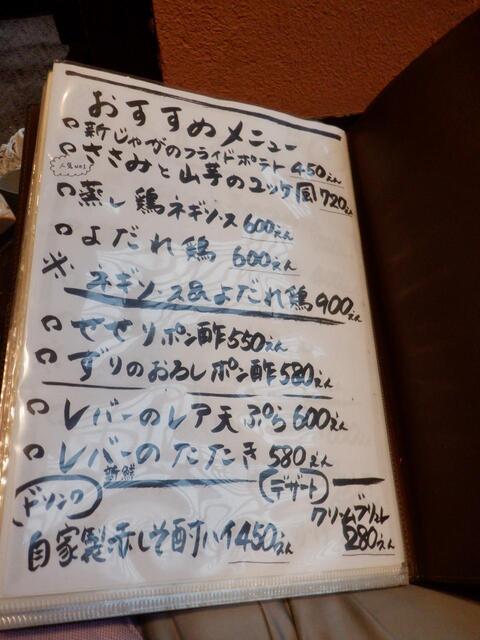 おすすめメニュー
新じゃがのフライドポテト 450えん
人気No.1
ささみと山芋のユッケ風 720えん
蒸し鶏ネギソース 600えん
よだれ鶏 600えん
※ ネギソース&よだれ鶏 900えん
せせりポン酢 550えん
ずりのおろしポン酢 580えん
レバーのレア天ぷら 600えん
レバーのたたき 580えん
新鮮
ドリンク
自家製赤しそ酎ハイ 450えん
デザート
クリームブリュレ
280えん